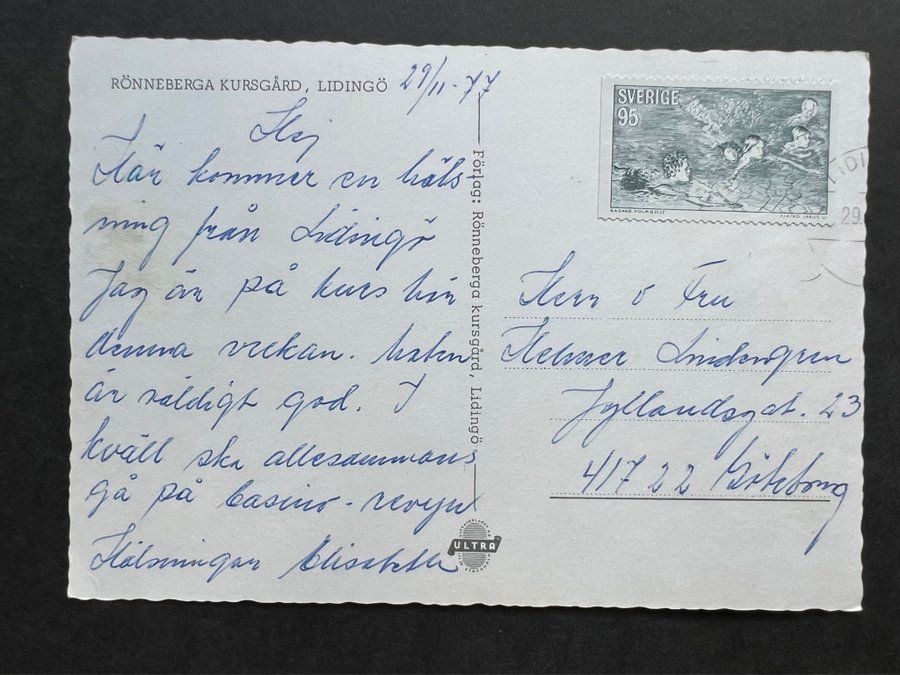 RÖNNEBERGA KURSGÅRD, LIDINGÖ 29/11-77
Hej
Här kommer en häls
ning från Lidingö
Jag är på kurs här
denna veckan. Maten
är väldigt god. I
kväll ska allesammans
gå på Casino-revyn
Hälsningar Elisabeth
Förlag: Rönneberga kursgård, Lidingö
ULTRA
SVERIGE
95
RAGNAR HOLMQVIST
LIDI
29.
Herr o Fru
Helmer Lindengren
Jyllandsgat. 23
417 22 Göteborg